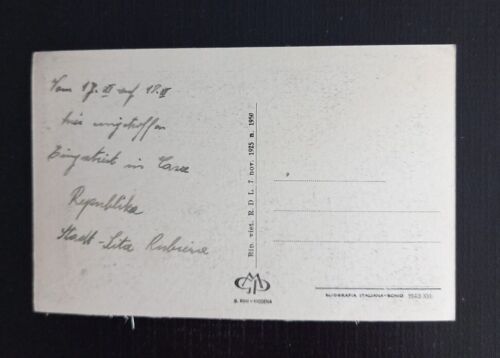 Vom 17. III auf 18. III
hier eingetroffen
Einquatiert in Casa
Republika
Stadt - Lita Rubiera
Rip. viet. R. D. L. 7 nov. 1925 n. 1950
B. RONI - MODENA
ITALIANA - 1943 XXI